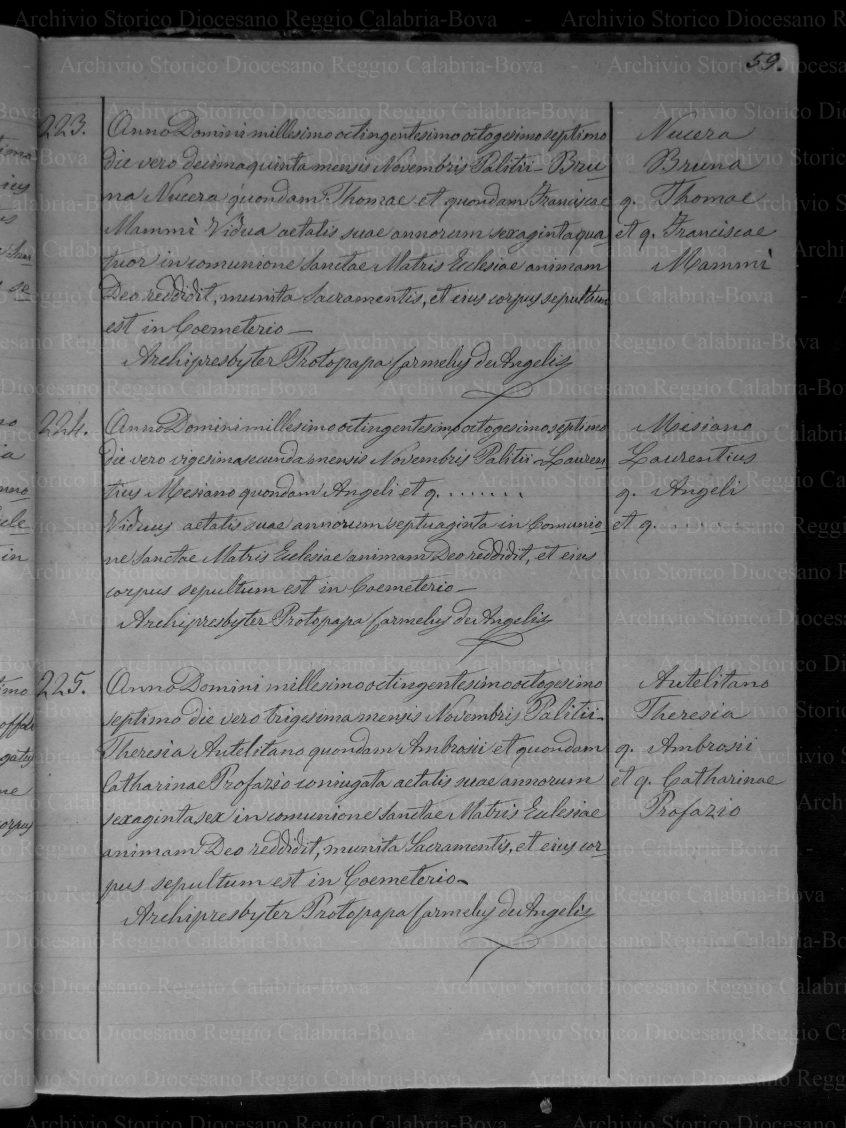 59.
223.
Anno Domini millesimo octingentesimo octogesimo septimo
die vero decimaquinta mensis Novembris Palitii - Bru_
na Nucera quondam Thomae et quondam Franciscae
Mammì Vidua aetatis suae annorum sexagintaqua_
tuor in comunione Sanctae Matris Ecclesiae animam
Deo reddidit, munita Sacramentis, et eius corpus sepultum
est in Coemeterio _
Archipresbyter Protopapa Carmelus de Angelis
Nucera
Bruna
q. Thomae
et q. Franciscae
Mammì
224.
Anno Domini millesimo octingentesimo octogesimo septimo
die vero vigesimasecunda mensis Novembris Palitii - Lauren_
tius Mesiano quondam Angeli et q. . . . . . . .
Viduus aetatis suae annorum septuaginta in Comunio_
ne Sanctae Matris Ecclesiae animam Deo reddidit, et eius
corpus sepultum est in Coemeterio _
Archipresbyter Protopapa Carmelus de Angelis
Misiano
Laurentius
q. Angeli
et q. . . . . . .
225.
Anno Domini millesimo octingentesimo octogesimo
septimo die vero trigesima mensis Novembris Palitii -
Theresia Autelitano quondam Ambrosii et quondam
Catharinae Profazio coniugata aetatis suae annorum
sexagintasex in comunione Sanctae Matris Ecclesiae
animam Deo reddidit, munita Sacramentis, et eius cor_
pus sepultum est in Coemeterio _
Archipresbyter Protopapa Carmelus de Angelis
Autelitano
Theresia
q. Ambrosii
et q. Catharinae
Profazio
Archivio Storico Diocesano Reggio Calabria-Bova